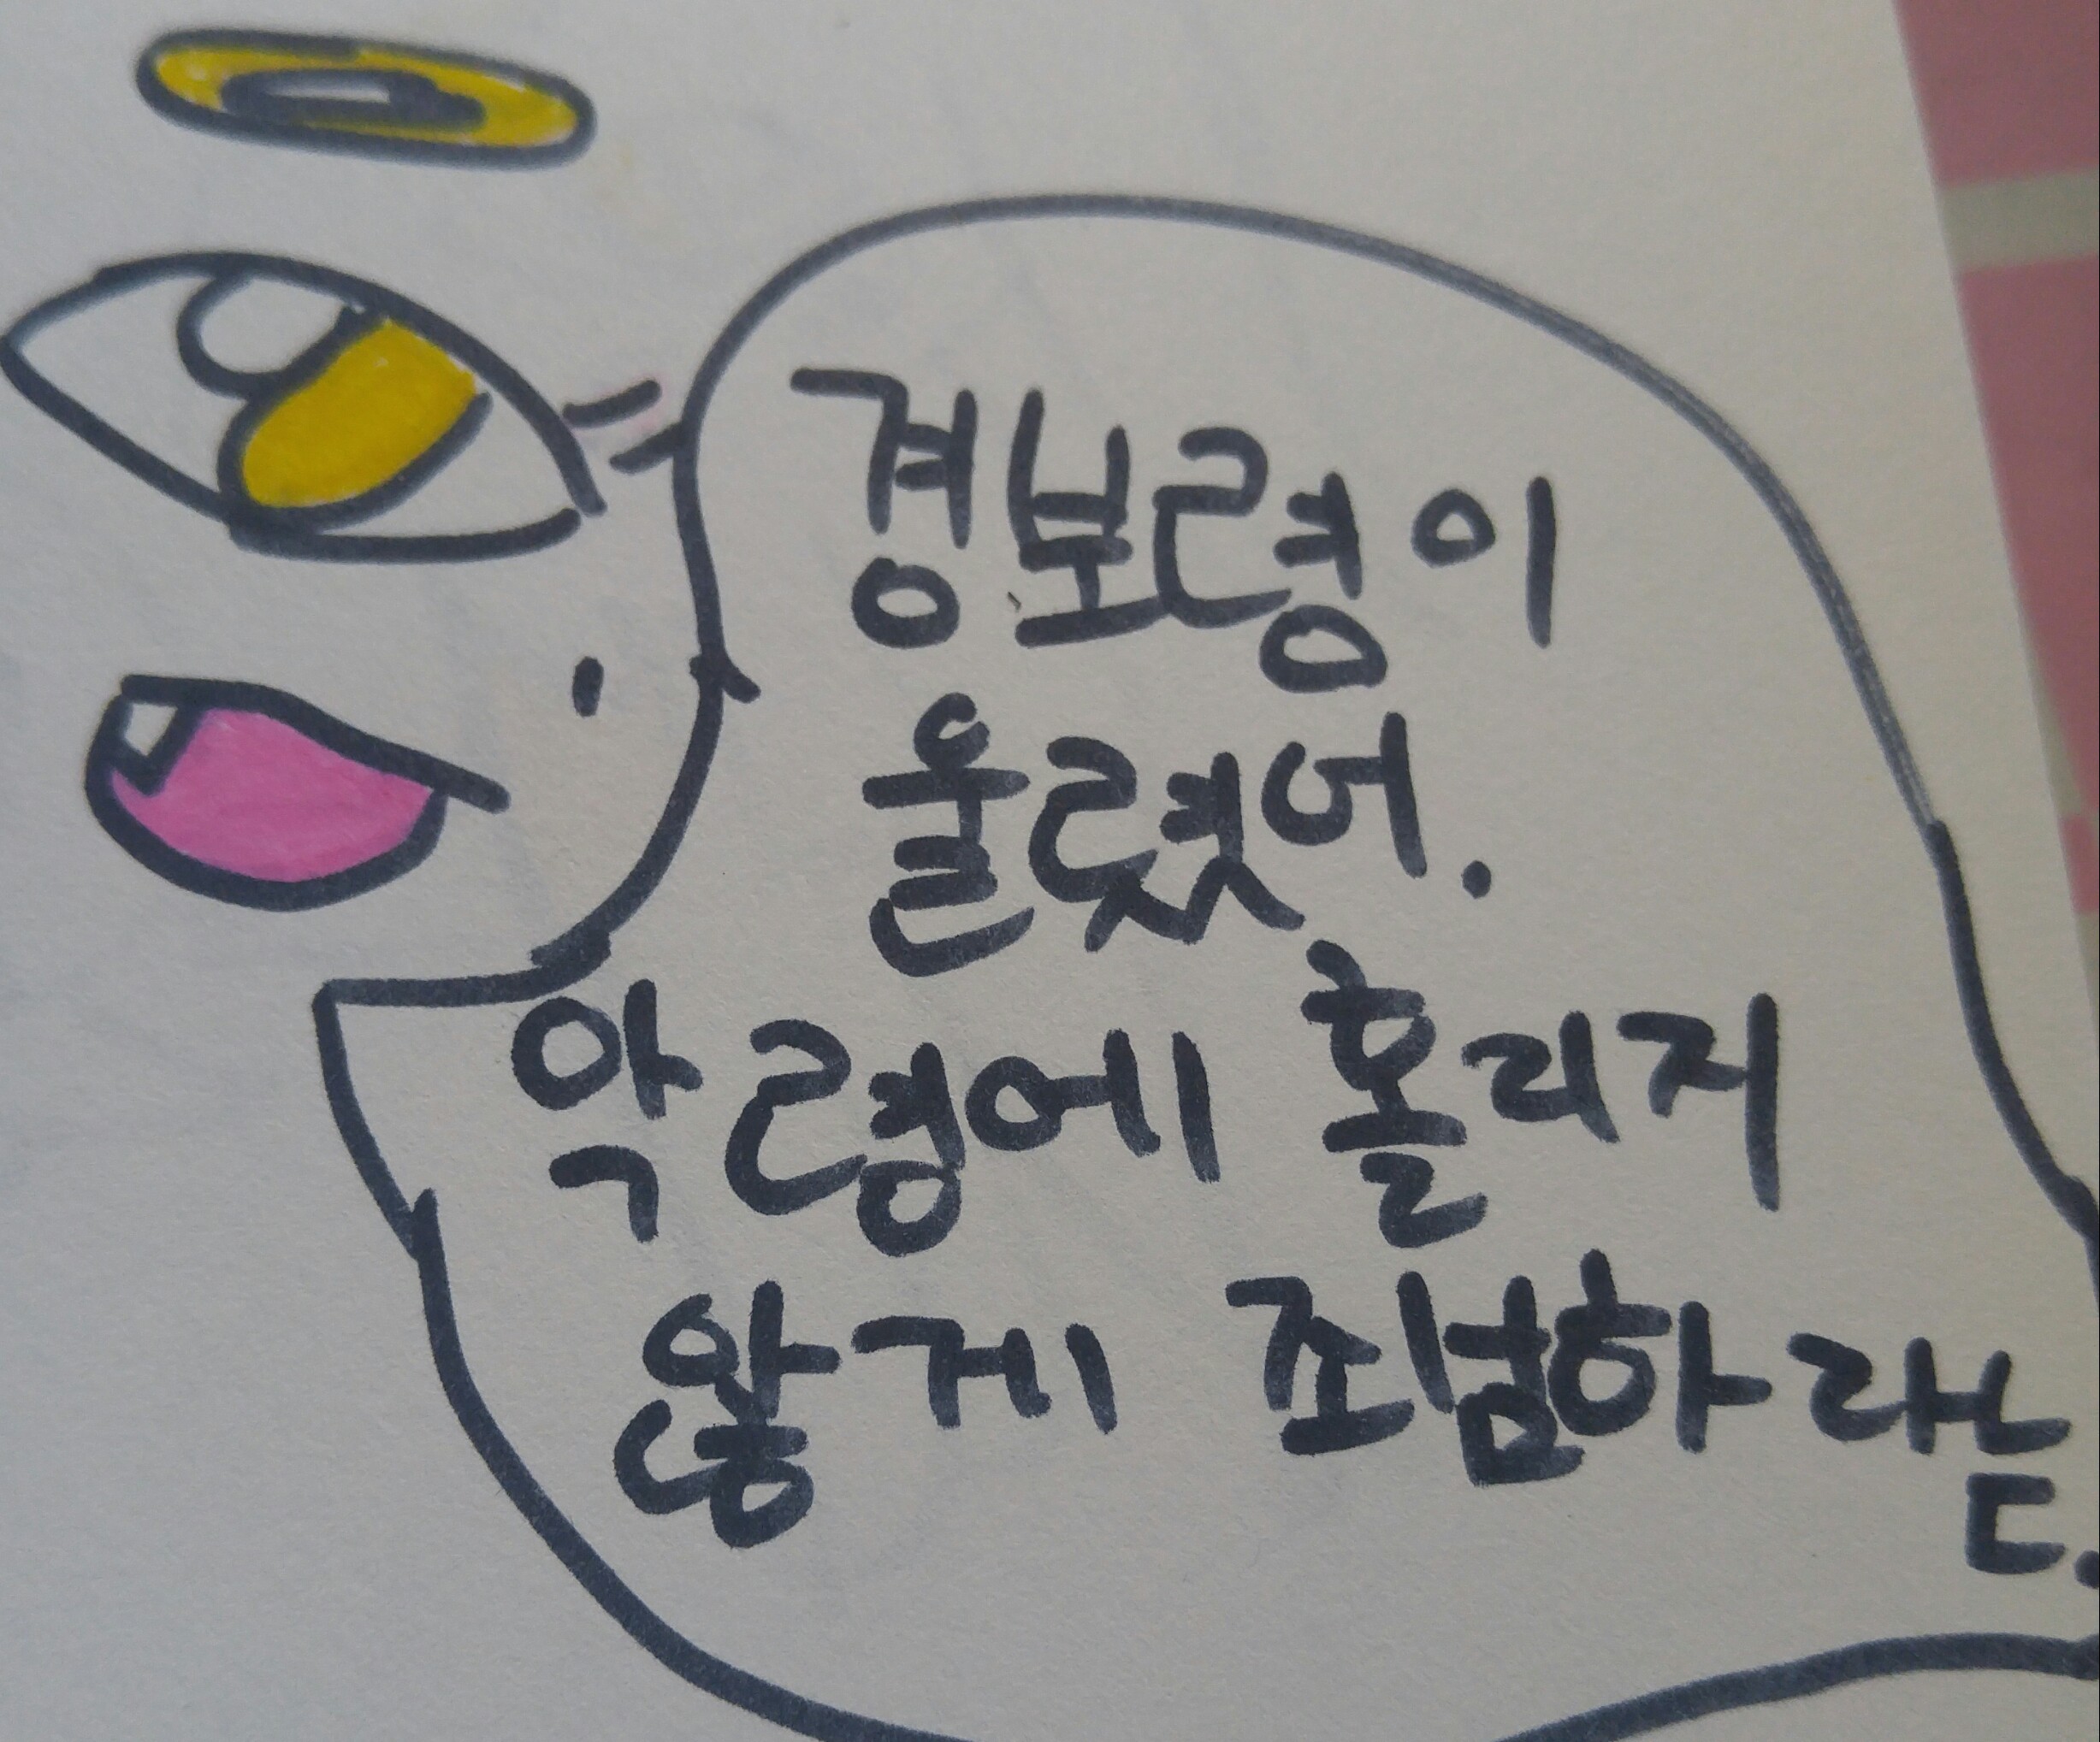 경보령이
울렸어.
악령에 홀리지
않게 조심하란
ㄷ.